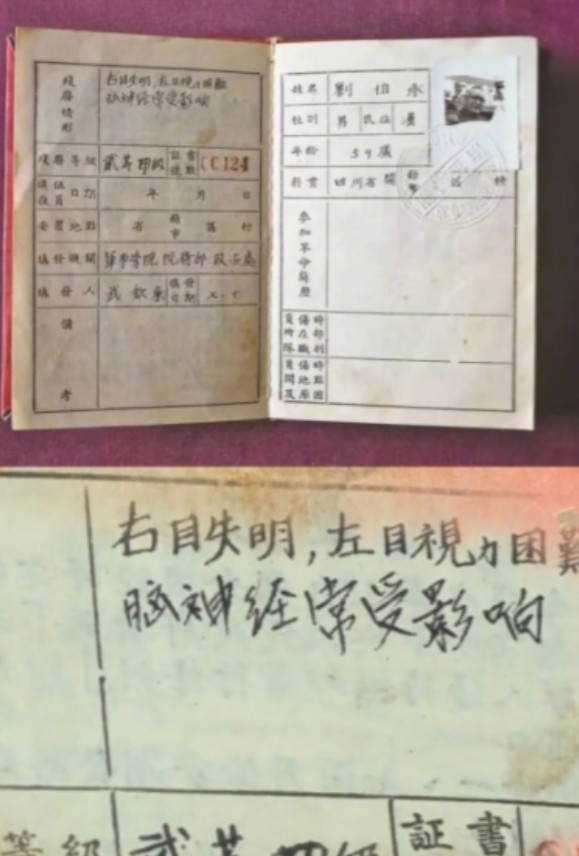 残廢情形
右目失明,左目視力困難
脑神经常受影响
残廢等級 貳等甲級 証書號數
年 月 日
安置地點 省 縣市 區 村
填發機關 軍事学院院务部政治處
填發人 武
備考
姓名 劉伯承
性别 男 民族 漢
年齡 59歲
籍貫 四川省開 縣市 區 村
参加革命簡歷
負傷時所在部隊職别
負傷時間地點及原因
右目失明,左目視力困難
脑神经常受影响
等級 貳等甲級 証書